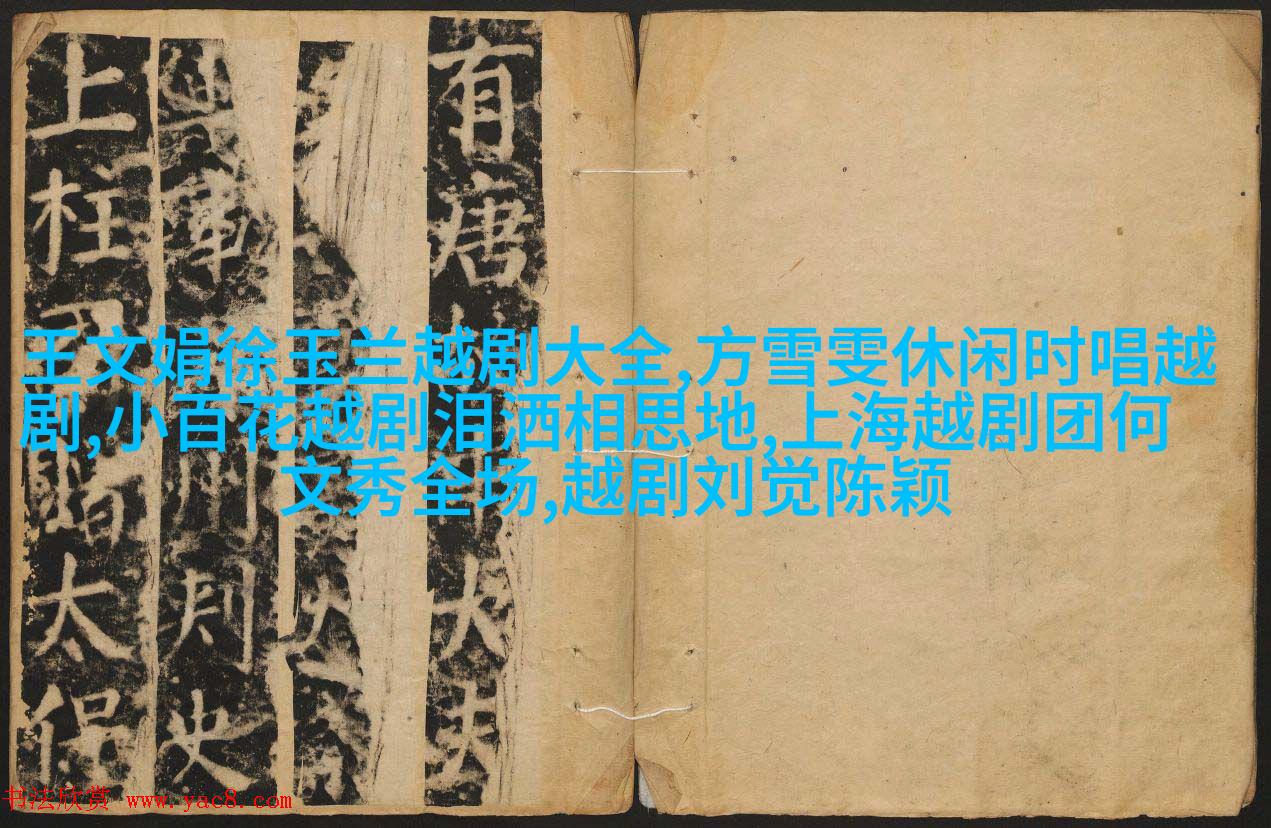 王文娟徐玉兰越剧大全,方雪雯休闲时唱越
剧,小百花越剧泪洒相思地,上海越剧团何
文秀全场,越剧刘觉陈颖
有唐
大夫
州刺史
上柱
太保
书法欣赏 www.yac8.com